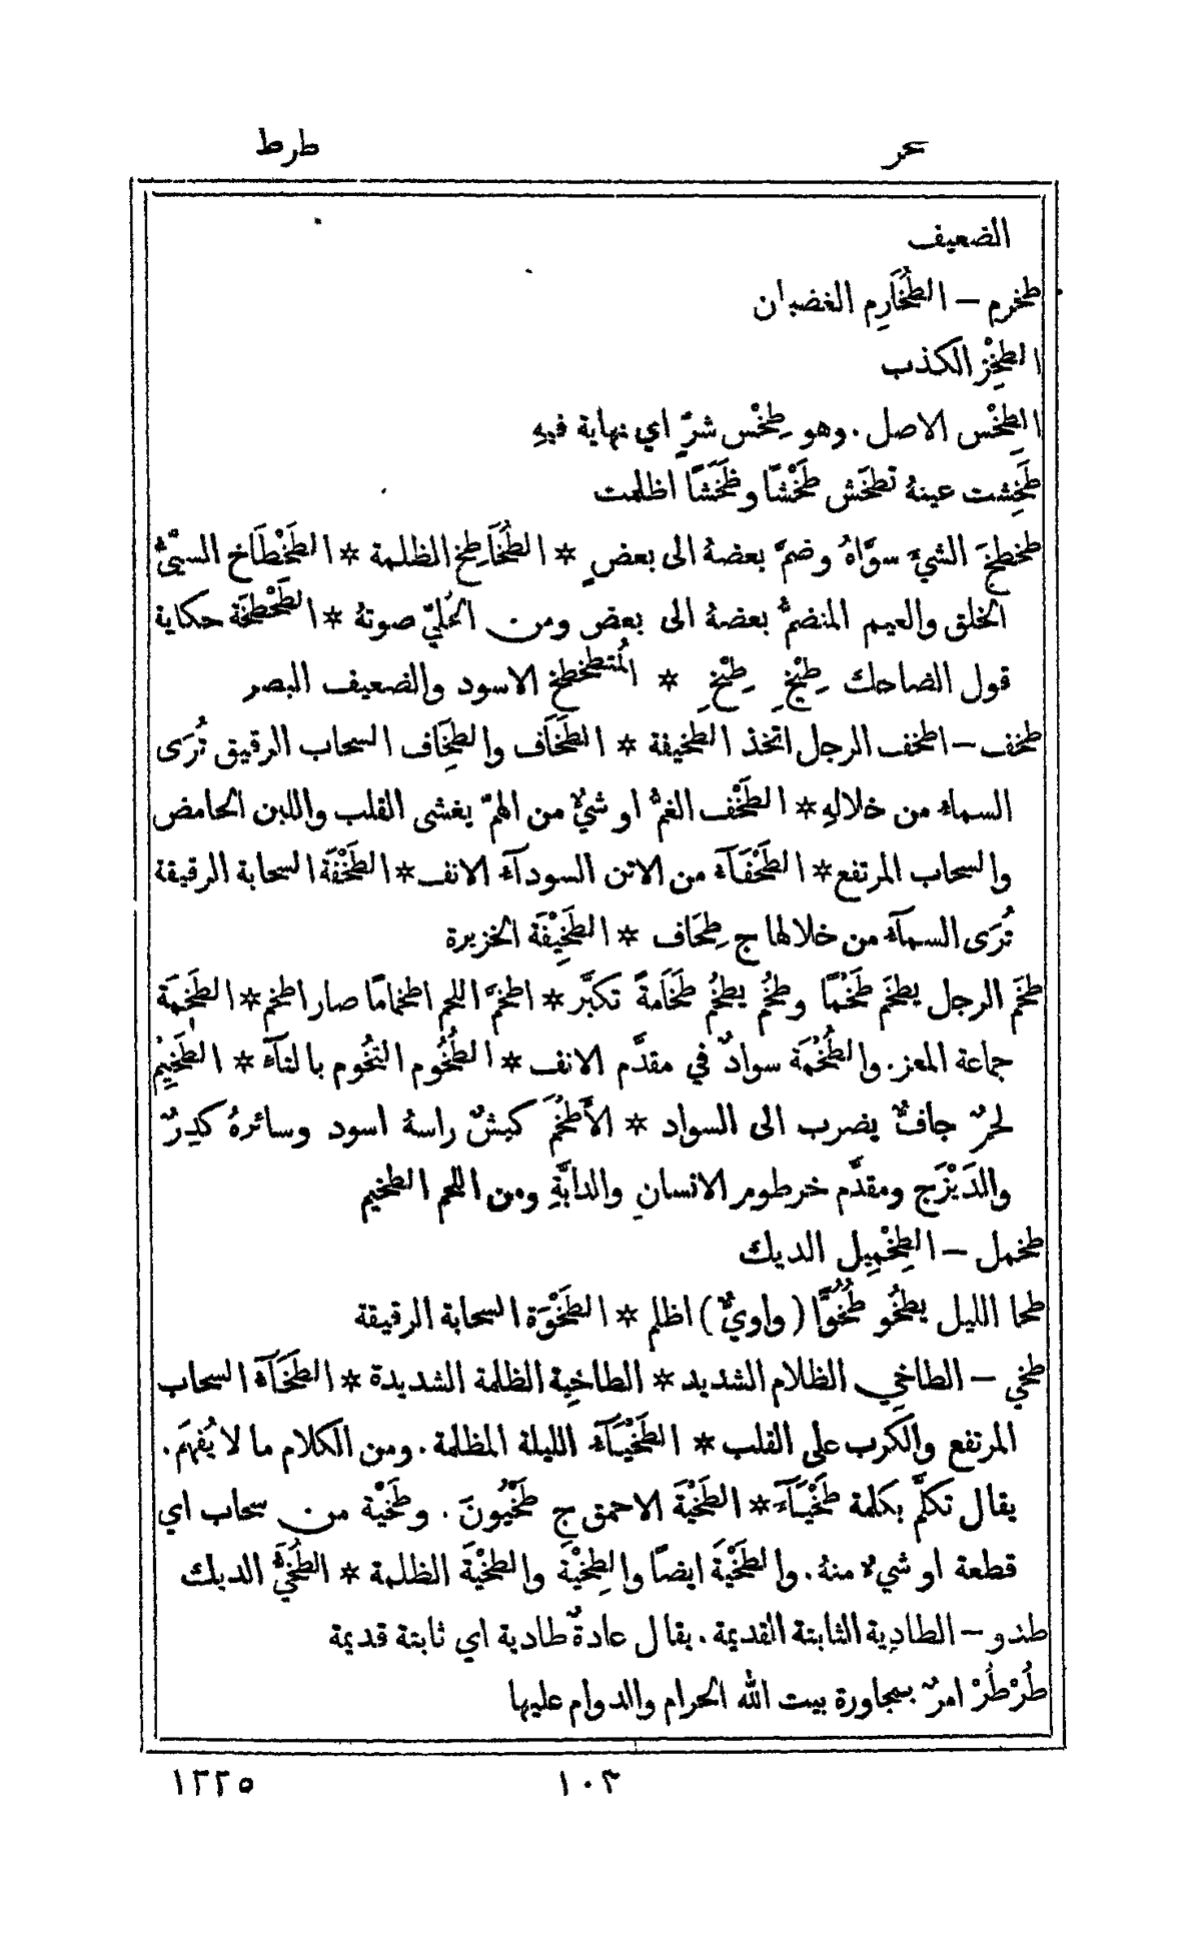 طرط
حر
الضعيف
طخرم – الطُخَارِم الغضبان
الطخْز الكذب
الطِخْس الاصل. وهو طِخْس شرٍّ اي نهاية فيهِ
طَخِشت عينهُ تطخَش طَخْشًا وطَخَشًا اظلمت
طخطخَ الشيَّ سوَّاهُ وضمَّ بعضهُ الى بعضٍ * الطُخَاطِخ الظلمة * الطَخْطَاخ السيّئُ
الخلق والغيم المنضمُّ بعضهُ الى بعض ومن الحُليّ صوتهُ * الطَخْطخَة حكاية
قول الضاحك طِيْخِ طِيْخِ * المُتطخطخ الاسود والضعيف البصر
طخف – اطخف الرجل اتخذ الطخيفة * الطَخَاف والطِخَاف السحاب الرقيق تُرَى
السماء من خلالهِ * الطَخْف الغمُّ او شيءٌ من الهمّ يغشى القلب واللبن الحامض
والسحاب المرتفع * الطَخْفَآء من الاتن السودآء الانف * الطَخْفَة السحابة الرقيقة
تُرَى السمآء من خلالها ج طِخَاف * الطَخِيْفَة الخزيرة
طخَم الرجل يطخَم طَخْمًا وطخُم يطخُم طَخَامةً تكبَّر * اطخمَّ اللحم اطخمامًا صار اطخم * الطَخَمَة
جماعة المعز. والطُخْمَة سوادٌ في مقدَّم الانف * الطُخُوم التخُوم بالتآء * الطَخِيْمُ
لحمٌ جافٌ يضرب الى السواد * الأَطْخَم كبشٌ راسهُ اسود وسائرهُ كدِرٌ
والدَيْزَج ومقدَّم خرطوم الانسانِ والدابَّةِ ومن اللحم الطخيم
طخمل – الطِخْمِيل الديك
طخا الليل يطخُو طُخُوًّا (واويٌّ) اظلم * الطَخْوَة السحابة الرقيقة
طخي – الطاخي الظلام الشديد * الطاخِية الظلمة الشديدة * الطَخَآء السحاب
المرتفع والكرب على القلب * الطَخْيَآء الليلة المظلمة. ومن الكلام ما لا يُفهَم.
يقال تكلَّم بكلمة طَخْيَآء * الطَخْيَة الاحمق ج طَخْيُونَ. وطَخْيَة من سحاب اي
قطعة او شيء منهُ. والطَخْيَة ايضًا والطِخْيَة والطُخْيَة الظلمة * الطُخَيُّ الديك
طدو – الطادِية الثابتة القديمة. يقال عادةٌ طادية اي ثابتة قديمة
طُرْطُرْ امرٌ بمجاورة بيت الله الحرام والدوام عليها
١٠٣
١٢٢٥